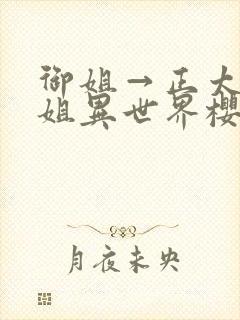 御姐→正大
姐異世界櫻
月夜未央